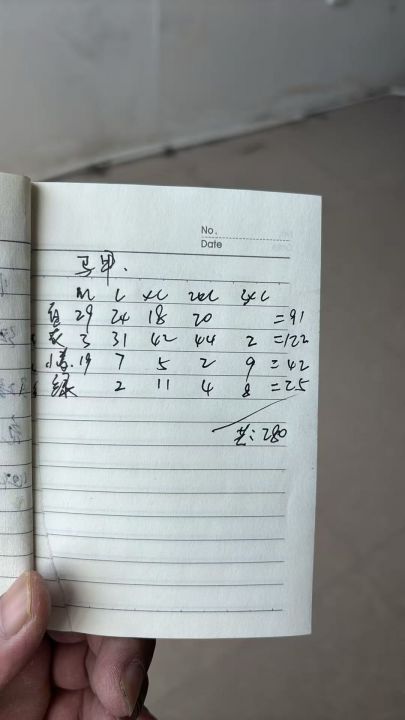 No.
Date
马甲.
M L XL 2XL 3XL
白 29 24 18 20 =91
灰 3 31 42 44 2 =122
19 7 5 2 9 =42
绿 2 11 4 8 =25
共:280